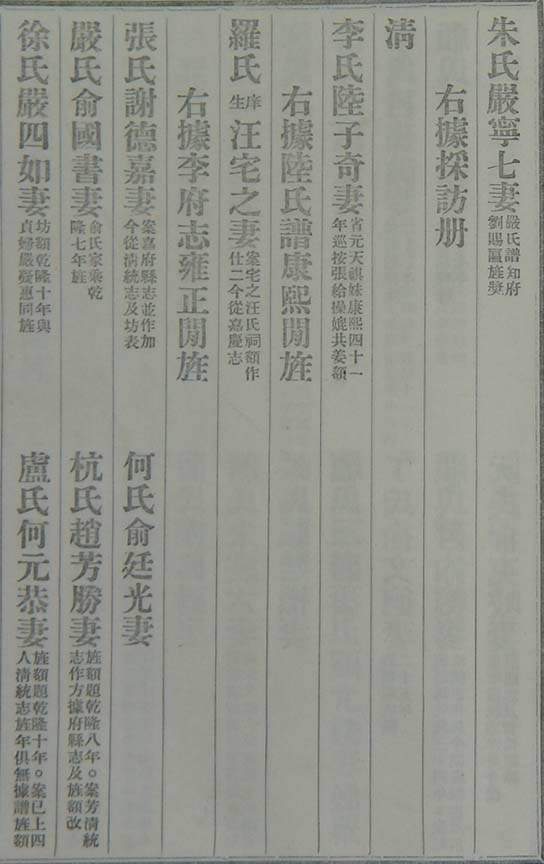 朱氏嚴寧七妻嚴氏譜知府劉賜匾旌獎
右據採訪册
清
李氏陸子奇妻省元天祺妹康熙四十一年巡按張給操媲共姜額
右據陸氏譜康熙閒旌
羅氏庠生汪宅之妻案宅之汪氏祠額作仕二今從嘉慶志
右據李府志雍正閒旌
張氏謝德嘉妻案嘉府縣志並作加今從清統志及坊表
何氏俞廷光妻
嚴氏俞國書妻俞氏家乘乾隆七年旌
杭氏趙芳勝妻旌額題乾隆八年○案芳清統志作方據府縣志及旌額改
徐氏嚴四如妻坊額乾隆十年與貞婦嚴凝惠同旌
盧氏何元恭妻旌額題乾隆十年○案已上四人清統志旌年俱無據譜旌額